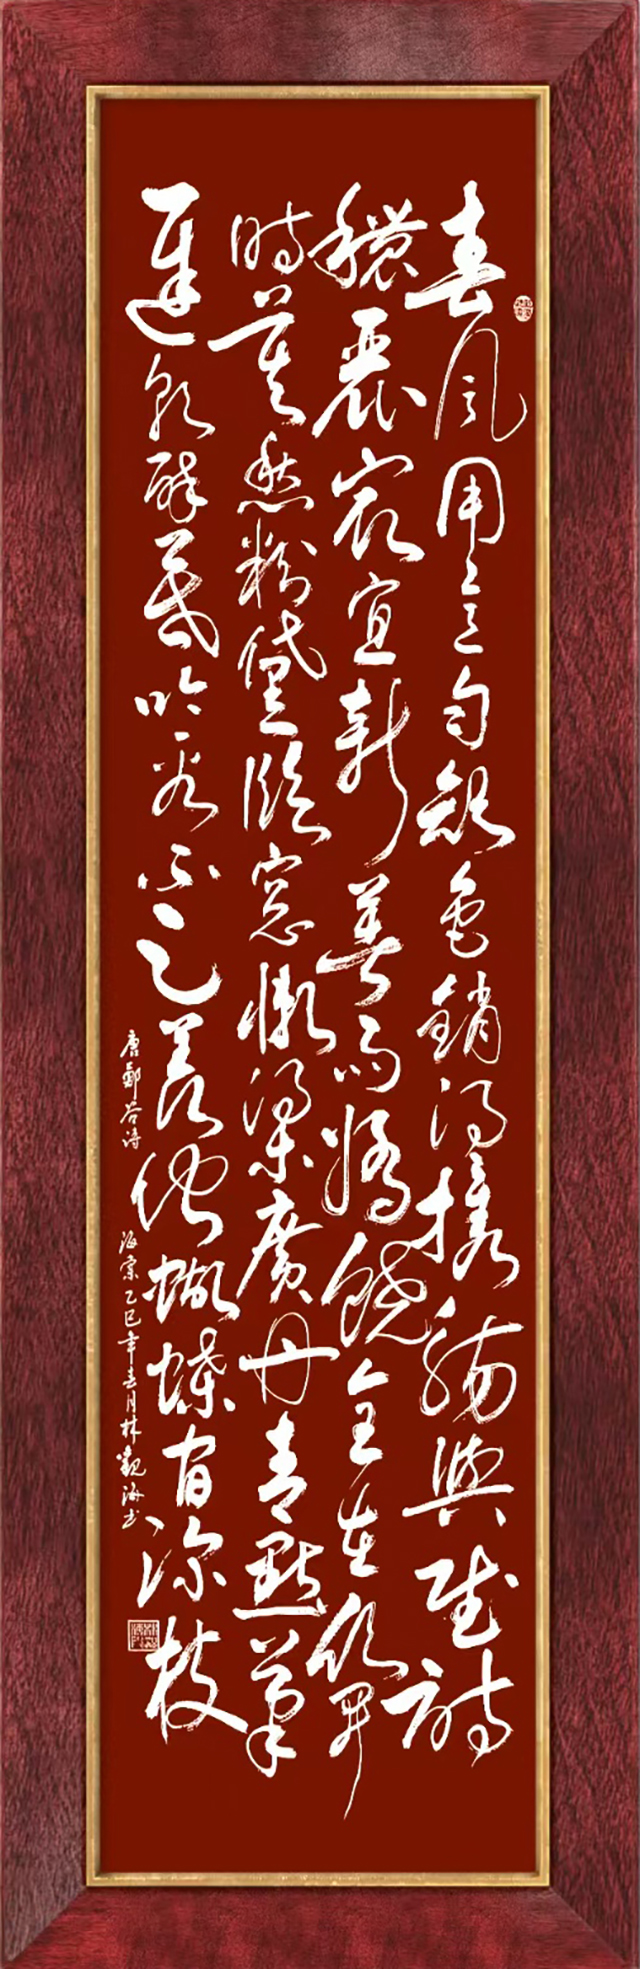 春風用意勻顏色銷得携觴與賦詩
穠麗最宜新著雨嬌饒全在欲開
時莫愁粉黛臨窗懶梁廣丹青點筆
遲朝醉暮吟看不足羨他蝴蝶宿深枝
唐鄭谷詩 海棠乙巳年春月林觀海書